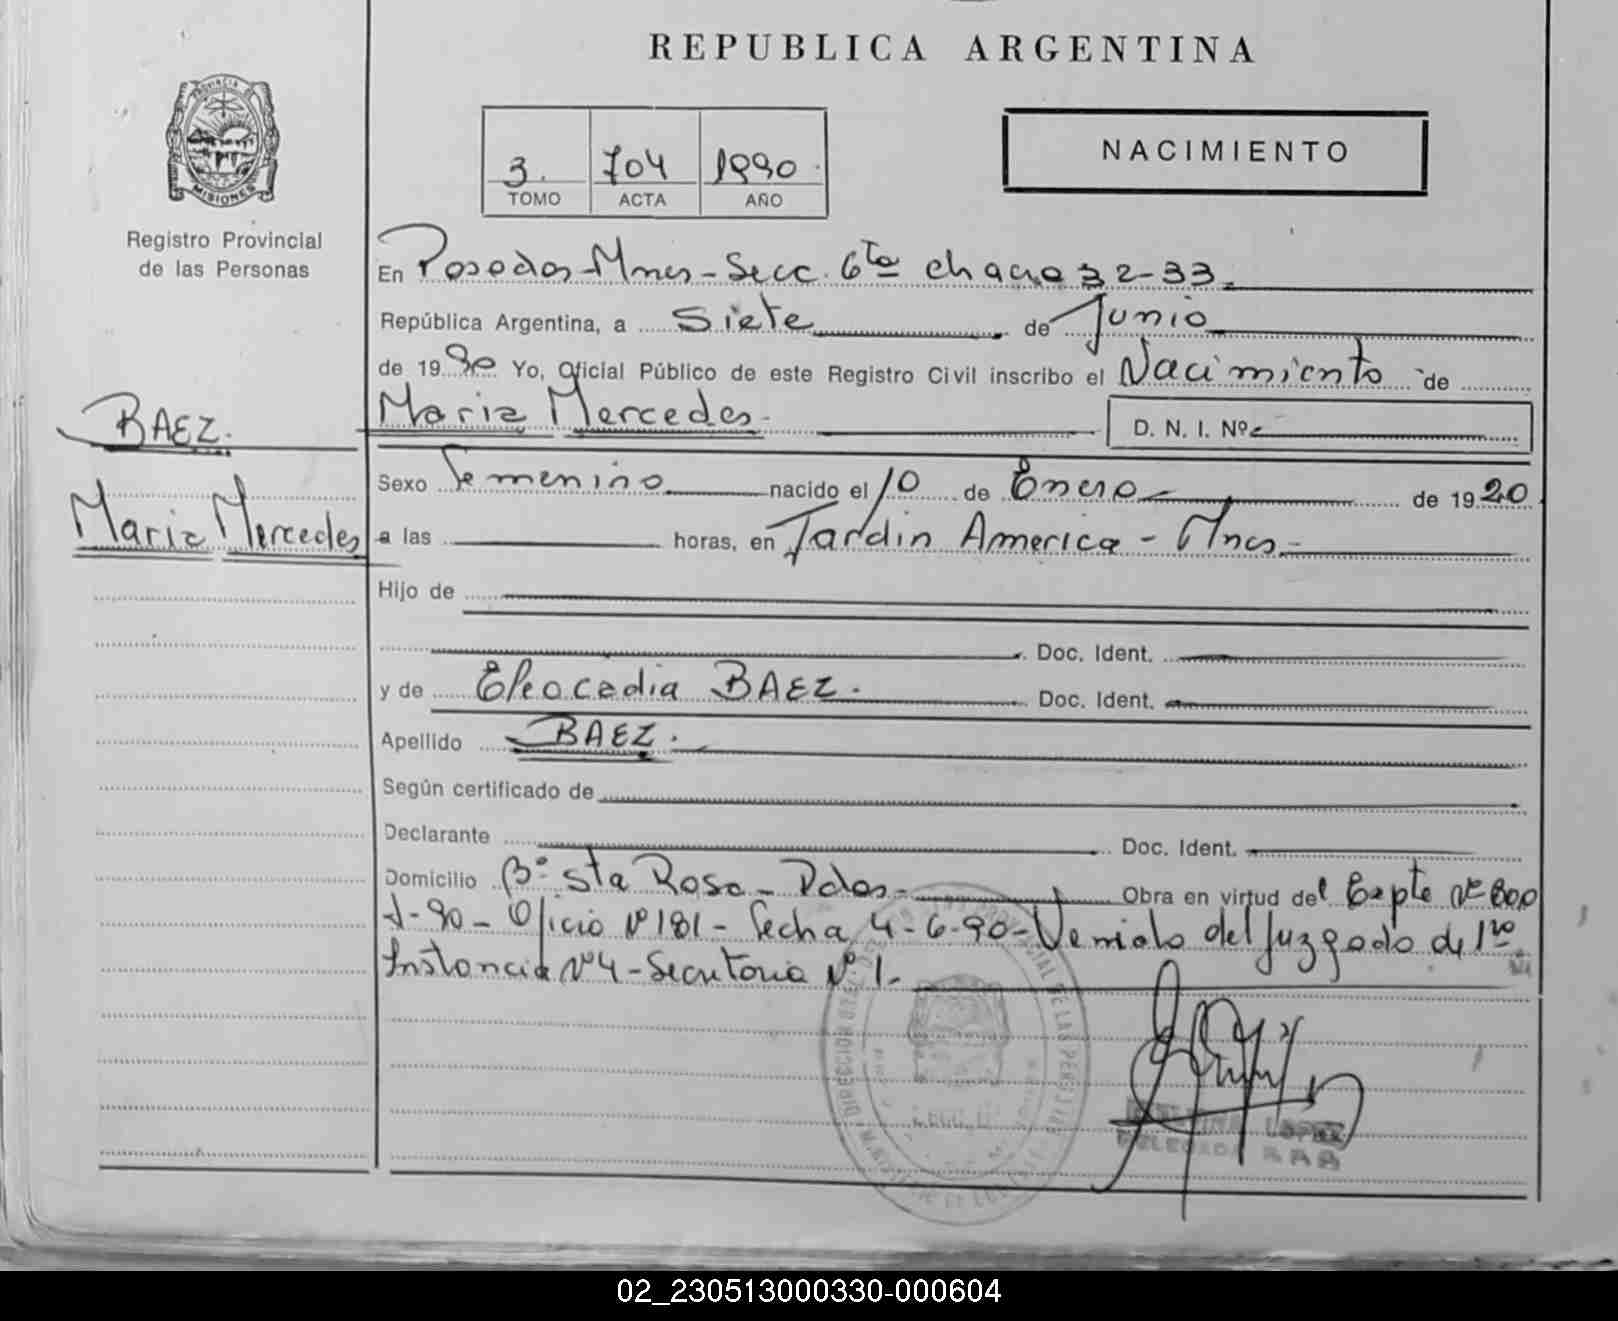 REPUBLICA ARGENTINA
PROVINCIA DE
MISIONES
Registro Provincial
de las Personas
3. 704 1990
TOMO ACTA AÑO
NACIMIENTO
En Posadas-Mnes-Secc. 6ta chacra 32-33.
República Argentina, a Siete de Junio
de 1990 Yo, Oficial Público de este Registro Civil inscribo el Nacimiento de
Maria Mercedes.
D. N. I. Nº
BAEZ.
Maria Mercedes
Sexo Femenino nacido el 10 de Enero de 1920
a las horas, en Jardin America - Mnes-
Hijo de
Doc. Ident.
y de Eleocadia BAEZ. Doc. Ident.
Apellido BAEZ.
Según certificado de
Declarante Doc. Ident.
Domicilio Bº Sta Rosa - Pdas- Obra en virtud del Expte Nº 800
J-90 - Oficio Nº 181 - fecha 4-6-90 - del Juzgado de 1ra
Instancia Nº4 - Secretaria Nº 1.
LOPEZ
DELEGADA
02_230513000330-000604